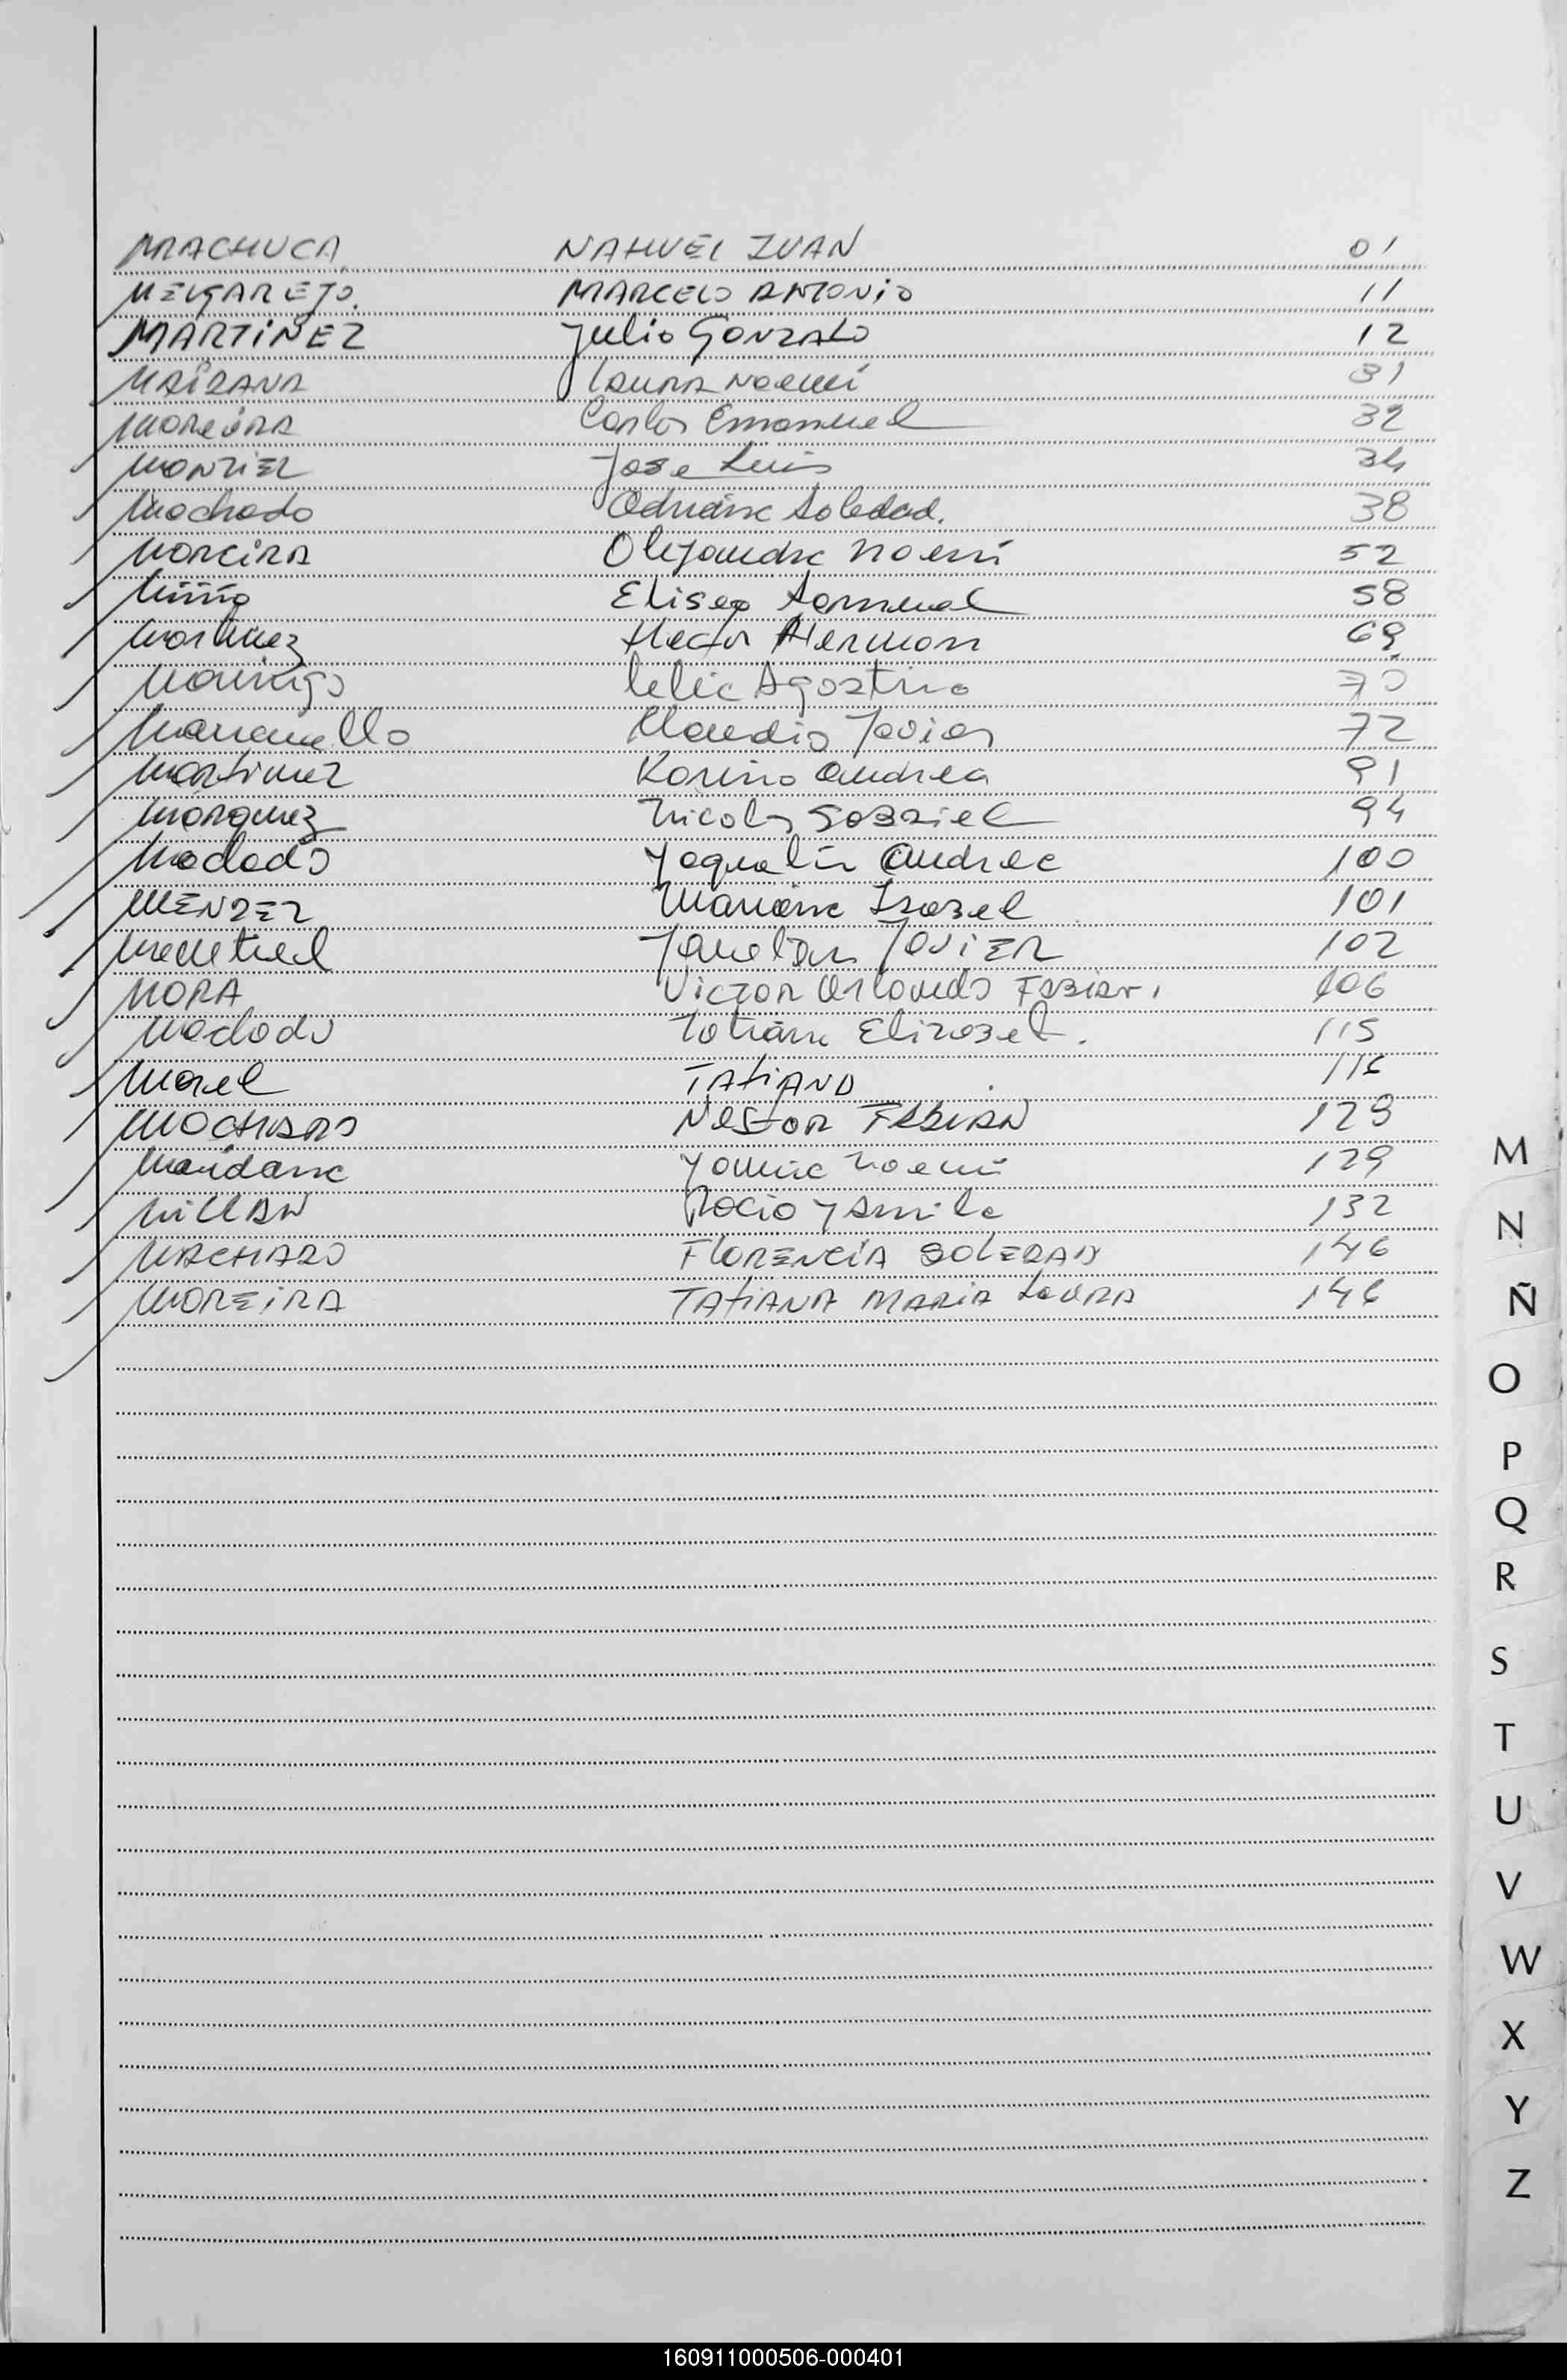 MACHUCA NAHUEL IVAN 01
MELGAREJO. MARCELO ANTONIO 11
MARTINEZ Julio GONZALO 12
MAIDANA Laura Noemí 31
Moreira Carlos Emanuel 32
MONTIEL Jose Luis 34
Machado Adriana Soledad. 38
Moreira Alejandra Noemi 52
Miño Eliseo Samuel 58
Martinez Hector Hernan 69
Mainigo Celia Agostina 70
Claudio Javier 72
Martinez Karina Andrea 91
Márquez Nicolas Gabriel 94
Machado Yaquelin Andrea 100
MENDEZ Mariana Isabel 101
JAVIER 102
MORA Victor Orlando Fabian. 106
Machado Tatiana Elizabet. 115
Morel TATIANA 116
MACHADO Nestor FABIAN 129
Maidana Yamila Noemi 129
MILLAN Rocio Yamila 132
MACHADO FLORENCIA SOLEDAD 146
MOREIRA TATIANA MARIA LAURA 146
M
N
Ñ
O
P
Q
R
S
T
U
V
W
X
Y
Z
160911000506-000401